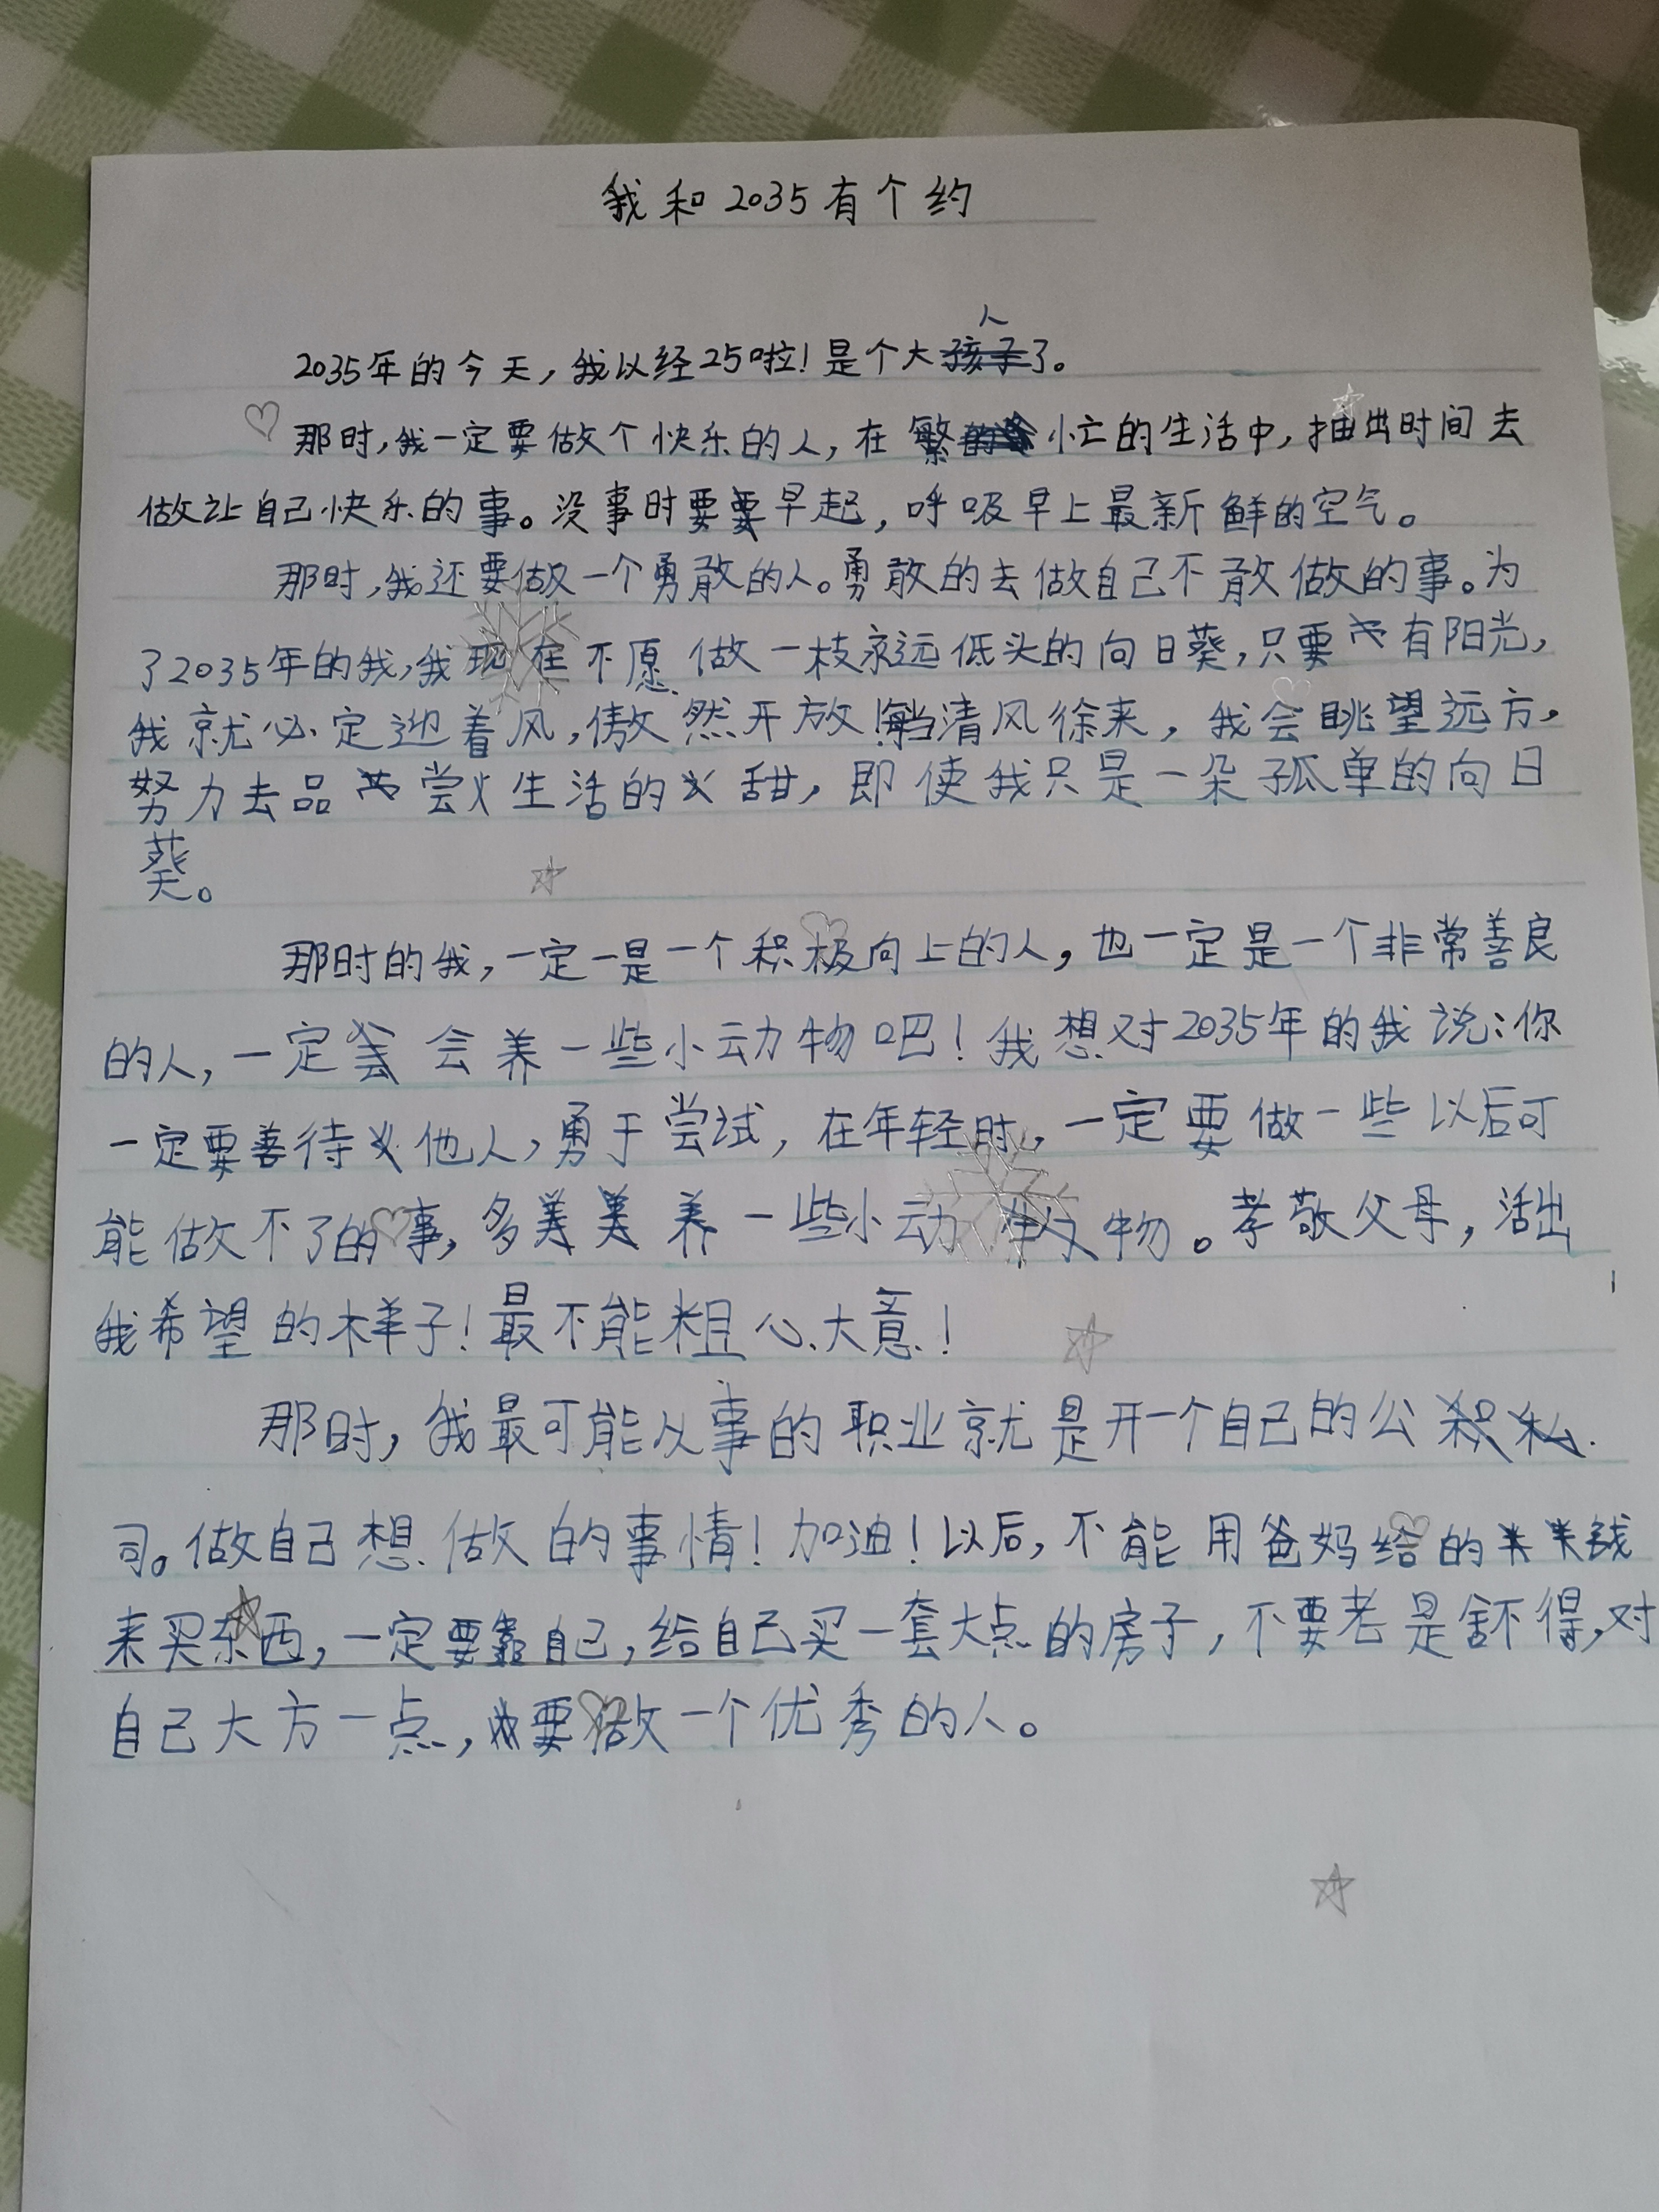 我和2035有个约
2035年的今天,我以经25啦!是个大人了。
那时,我一定要做个快乐的人,在繁忙的生活中,抽出时间去
做让自己快乐的事。没事时要早起,呼吸早上最新鲜的空气。
那时,我还要做一个勇敢的人。勇敢的去做自己不敢做的事。为
了2035年的我,我现在不愿做一枝永远低头的向日葵,只要有阳光,
我就必定迎着风,傲然开放!当清风徐来,我会眺望远方,
努力去品尝生活的甜,即使我只是一朵孤单的向日
葵。
那时的我,一定是一个积极向上的人,也一定是一个非常善良
的人,一定会养一些小动物吧!我想对2035年的我说:你
一定要善待他人,勇于尝试,在年轻时,一定要做一些以后可
能做不了的事,多养一些小动物。孝敬父母,活出
我希望的样子!最不能粗心大意!
那时,我最可能从事的职业就是开一个自己的公
司。做自己想做的事情!加油!以后,不能用爸妈给的钱
来买东西,一定要靠自己,给自己买一套大点的房子,不要老是舍不得,对
自己大方一点,要做一个优秀的人。